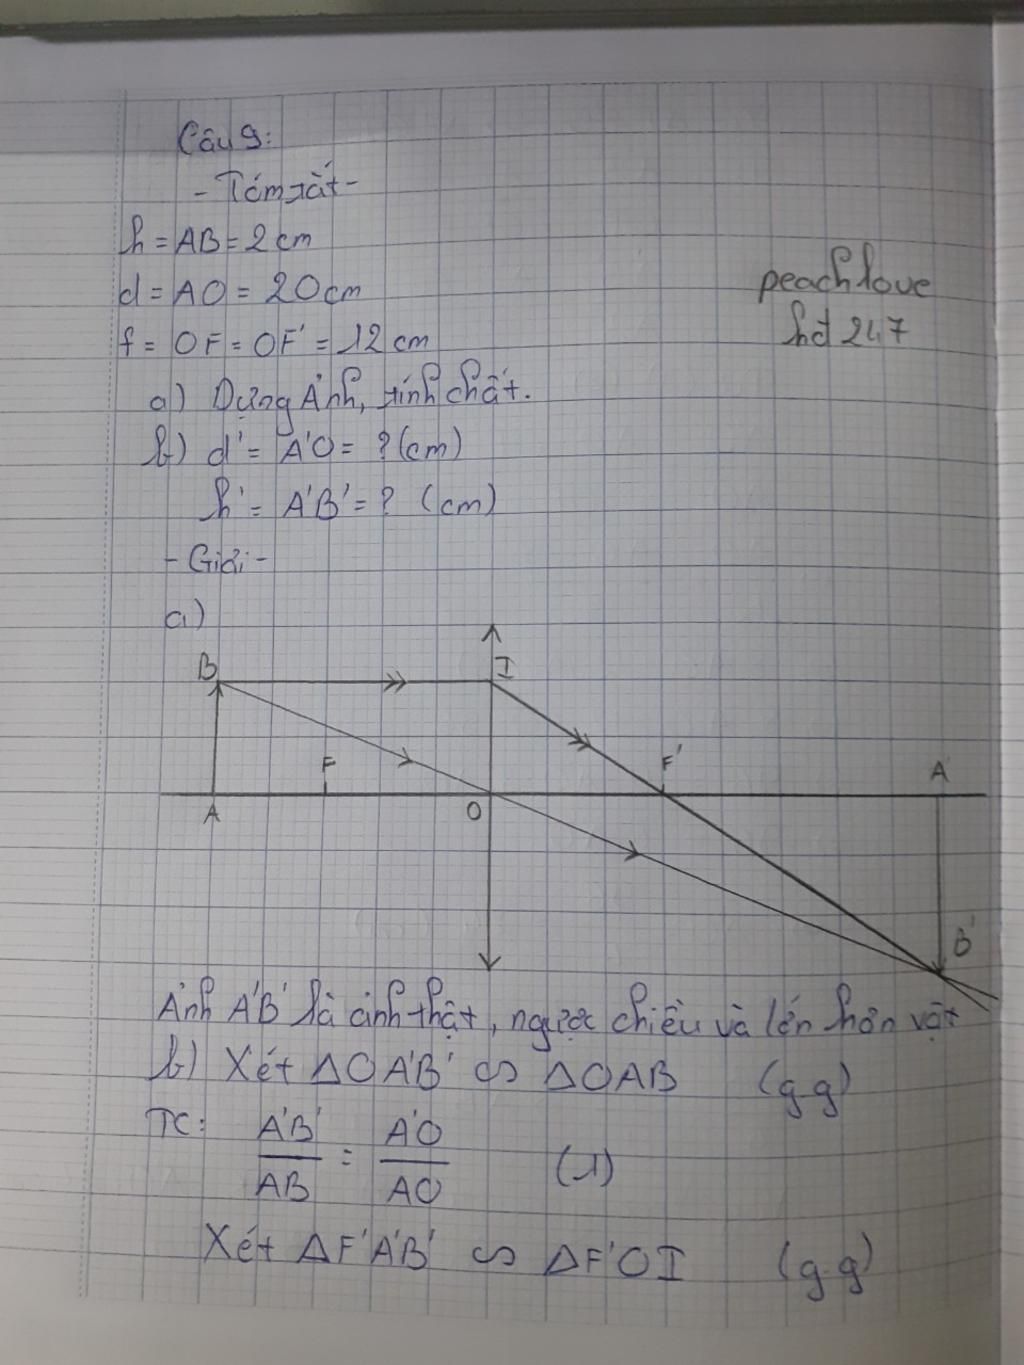 Câu 9:
- Tóm tắt -
h = AB = 2 cm
d = AO = 20 cm
peachlove
hđ 247
f = OF = OF' = 12 cm
a) Dựng Ảnh, tính chất.
b) d' = A'O = ? (cm)
h' = A'B' = ? (cm)
- Giải -
a)
B I
F F' A'
A O
B'
Ảnh A'B' là ảnh thật, ngược chiều và lớn hơn vật
b) Xét ΔOA'B' ∽ ΔOAB (g.g)
TC: A'B'/AB = A'O/AO (1)
Xét ΔF'A'B' ∽ ΔF'OI (g.g)